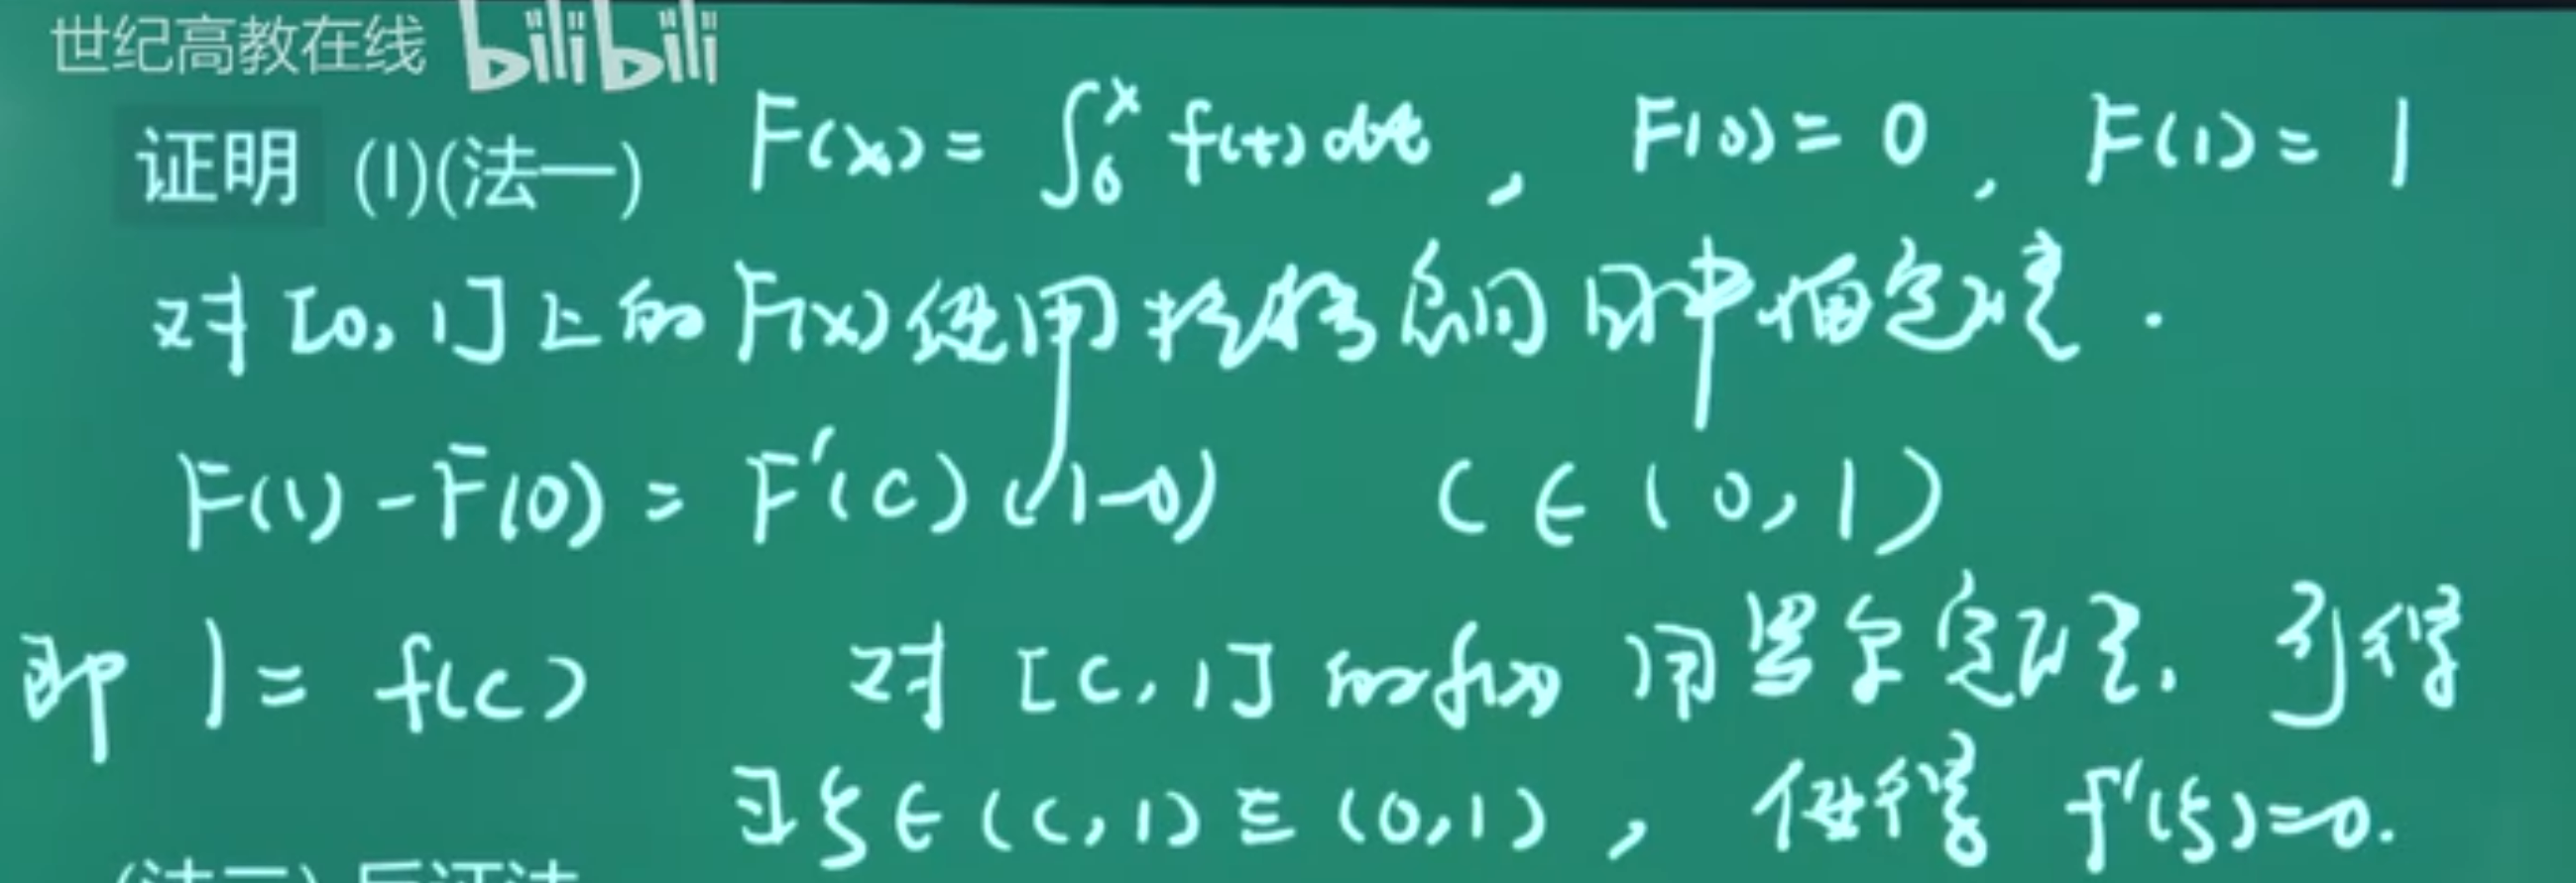 世纪高教在线 bilibili
证明 (1)(法一) F(x) = ∫₀ˣ f(t) dt , F(0) = 0 , F(1) = 1
对 [0, 1] 上的 F(x) 使用拉格朗日中值定理.
F(1) - F(0) = F'(c) (1-0) c ∈ (0,1)
即 1 = f(c) 对 [c, 1] 的 f(x) 用罗尔定理. 可得
∃ξ ∈ (c,1) ⊆ (0,1) , 使得 f'(ξ)=0.
(法二) 反证法